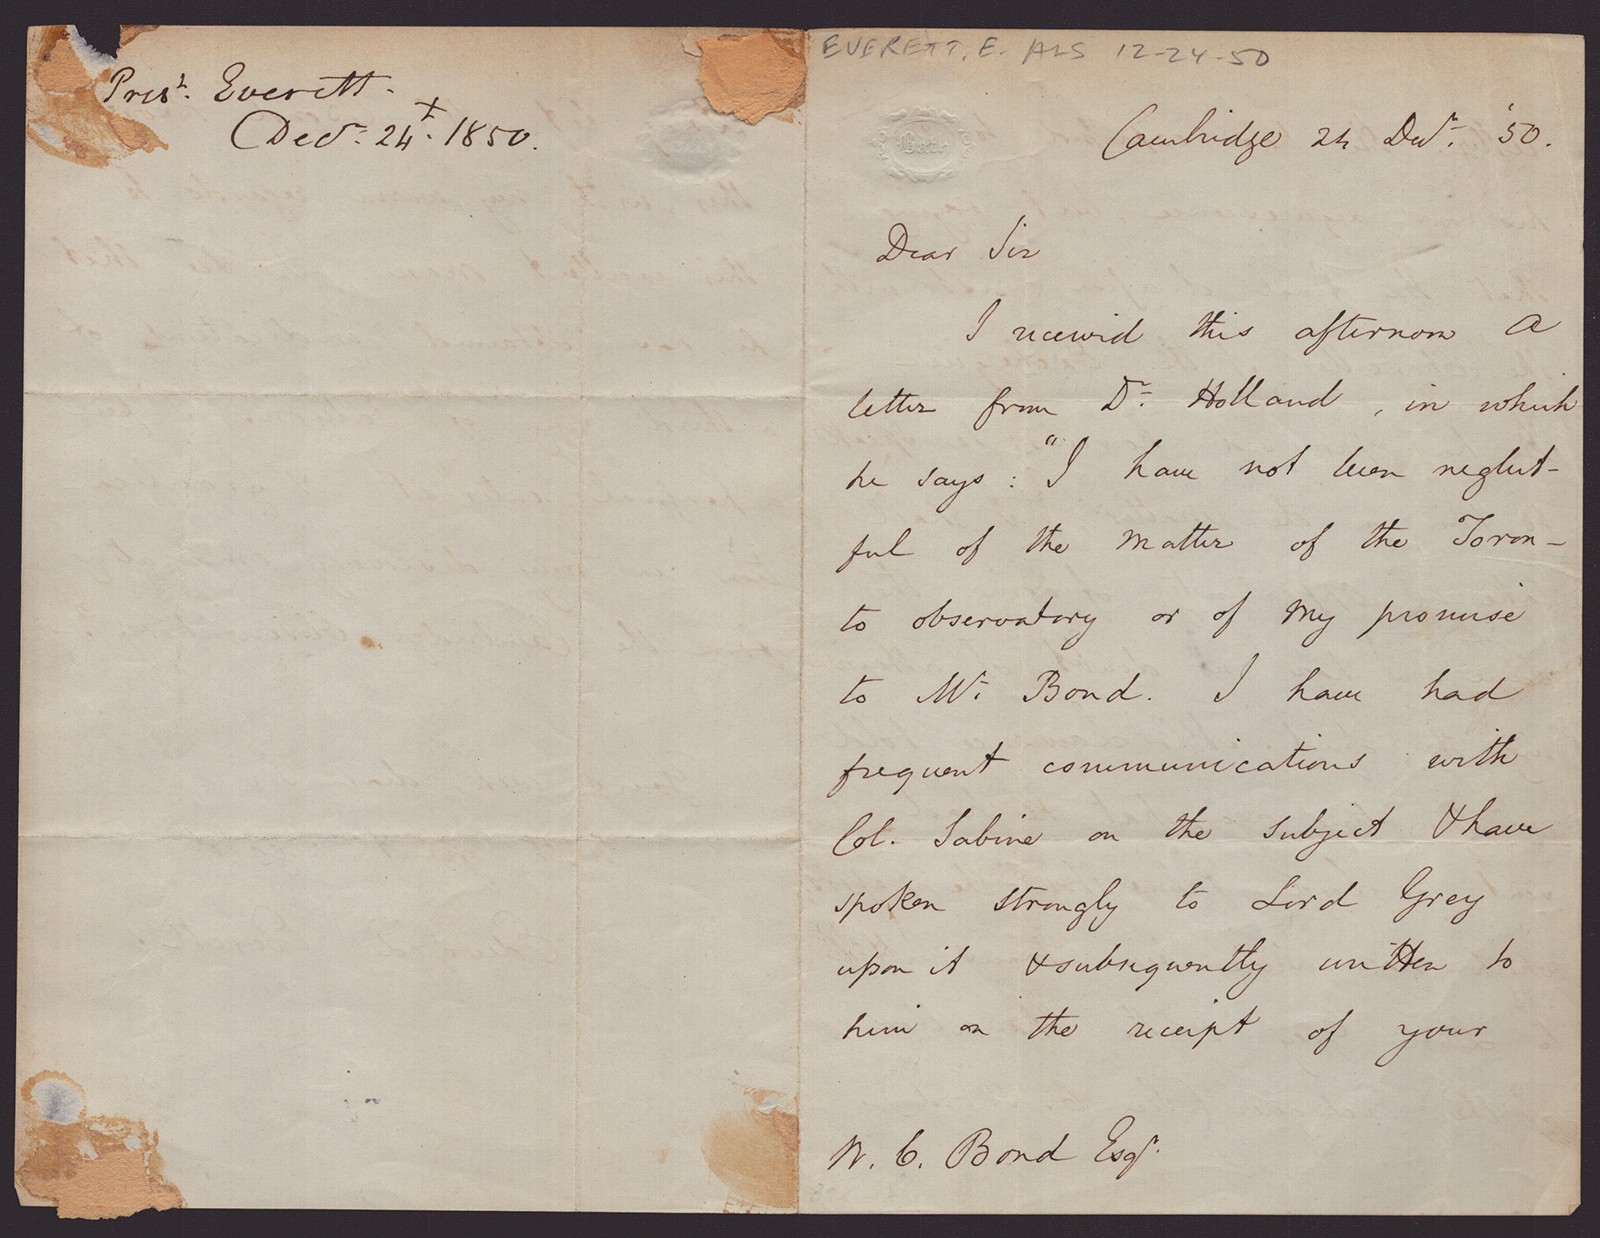 Presᵗ. Everett.
Decʳ. 24ᵗ. 1850.
EVERETT, E. ALS 12-24-50
Bath
Cambridge 24 Decʳ. '50.
Dear Sir
I received this afternoon a
letter from Dʳ. Holland, in which
he says: "I have not been neglect-
ful of the matter of the Toron-
to observatory or of my promise
to Mʳ. Bond. I have had
frequent communications with
Col. Sabine on the subject & have
spoken strongly to Lord Grey
upon it & subsequently written to
him on the receipt of your
W. C. Bond Esqʳ.